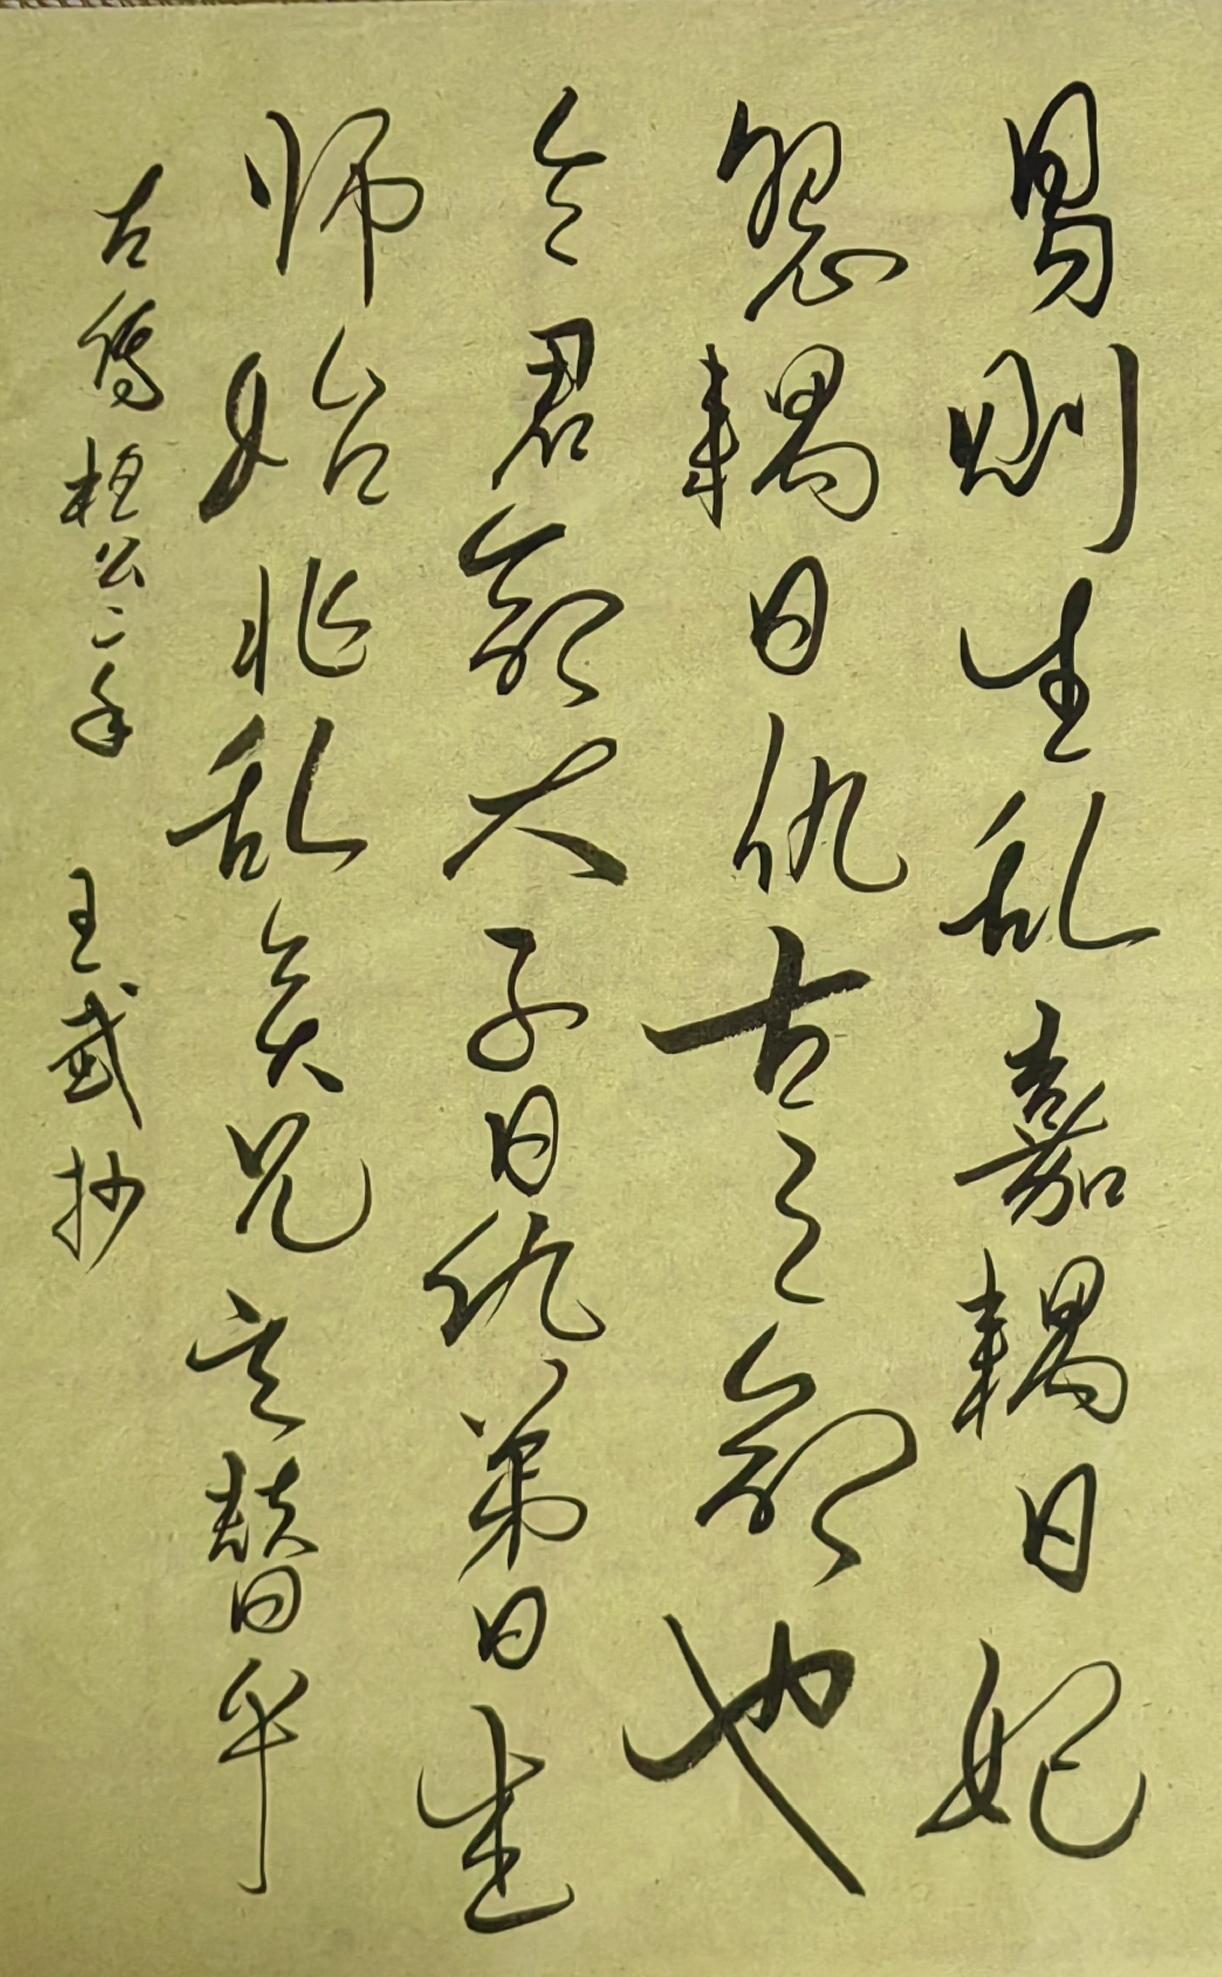 易则生乱嘉耦曰妃
怨耦曰仇古之命也
今君命大子曰仇弟曰生
师始兆乱矣兄其替乎
左传桓公二年 王武抄